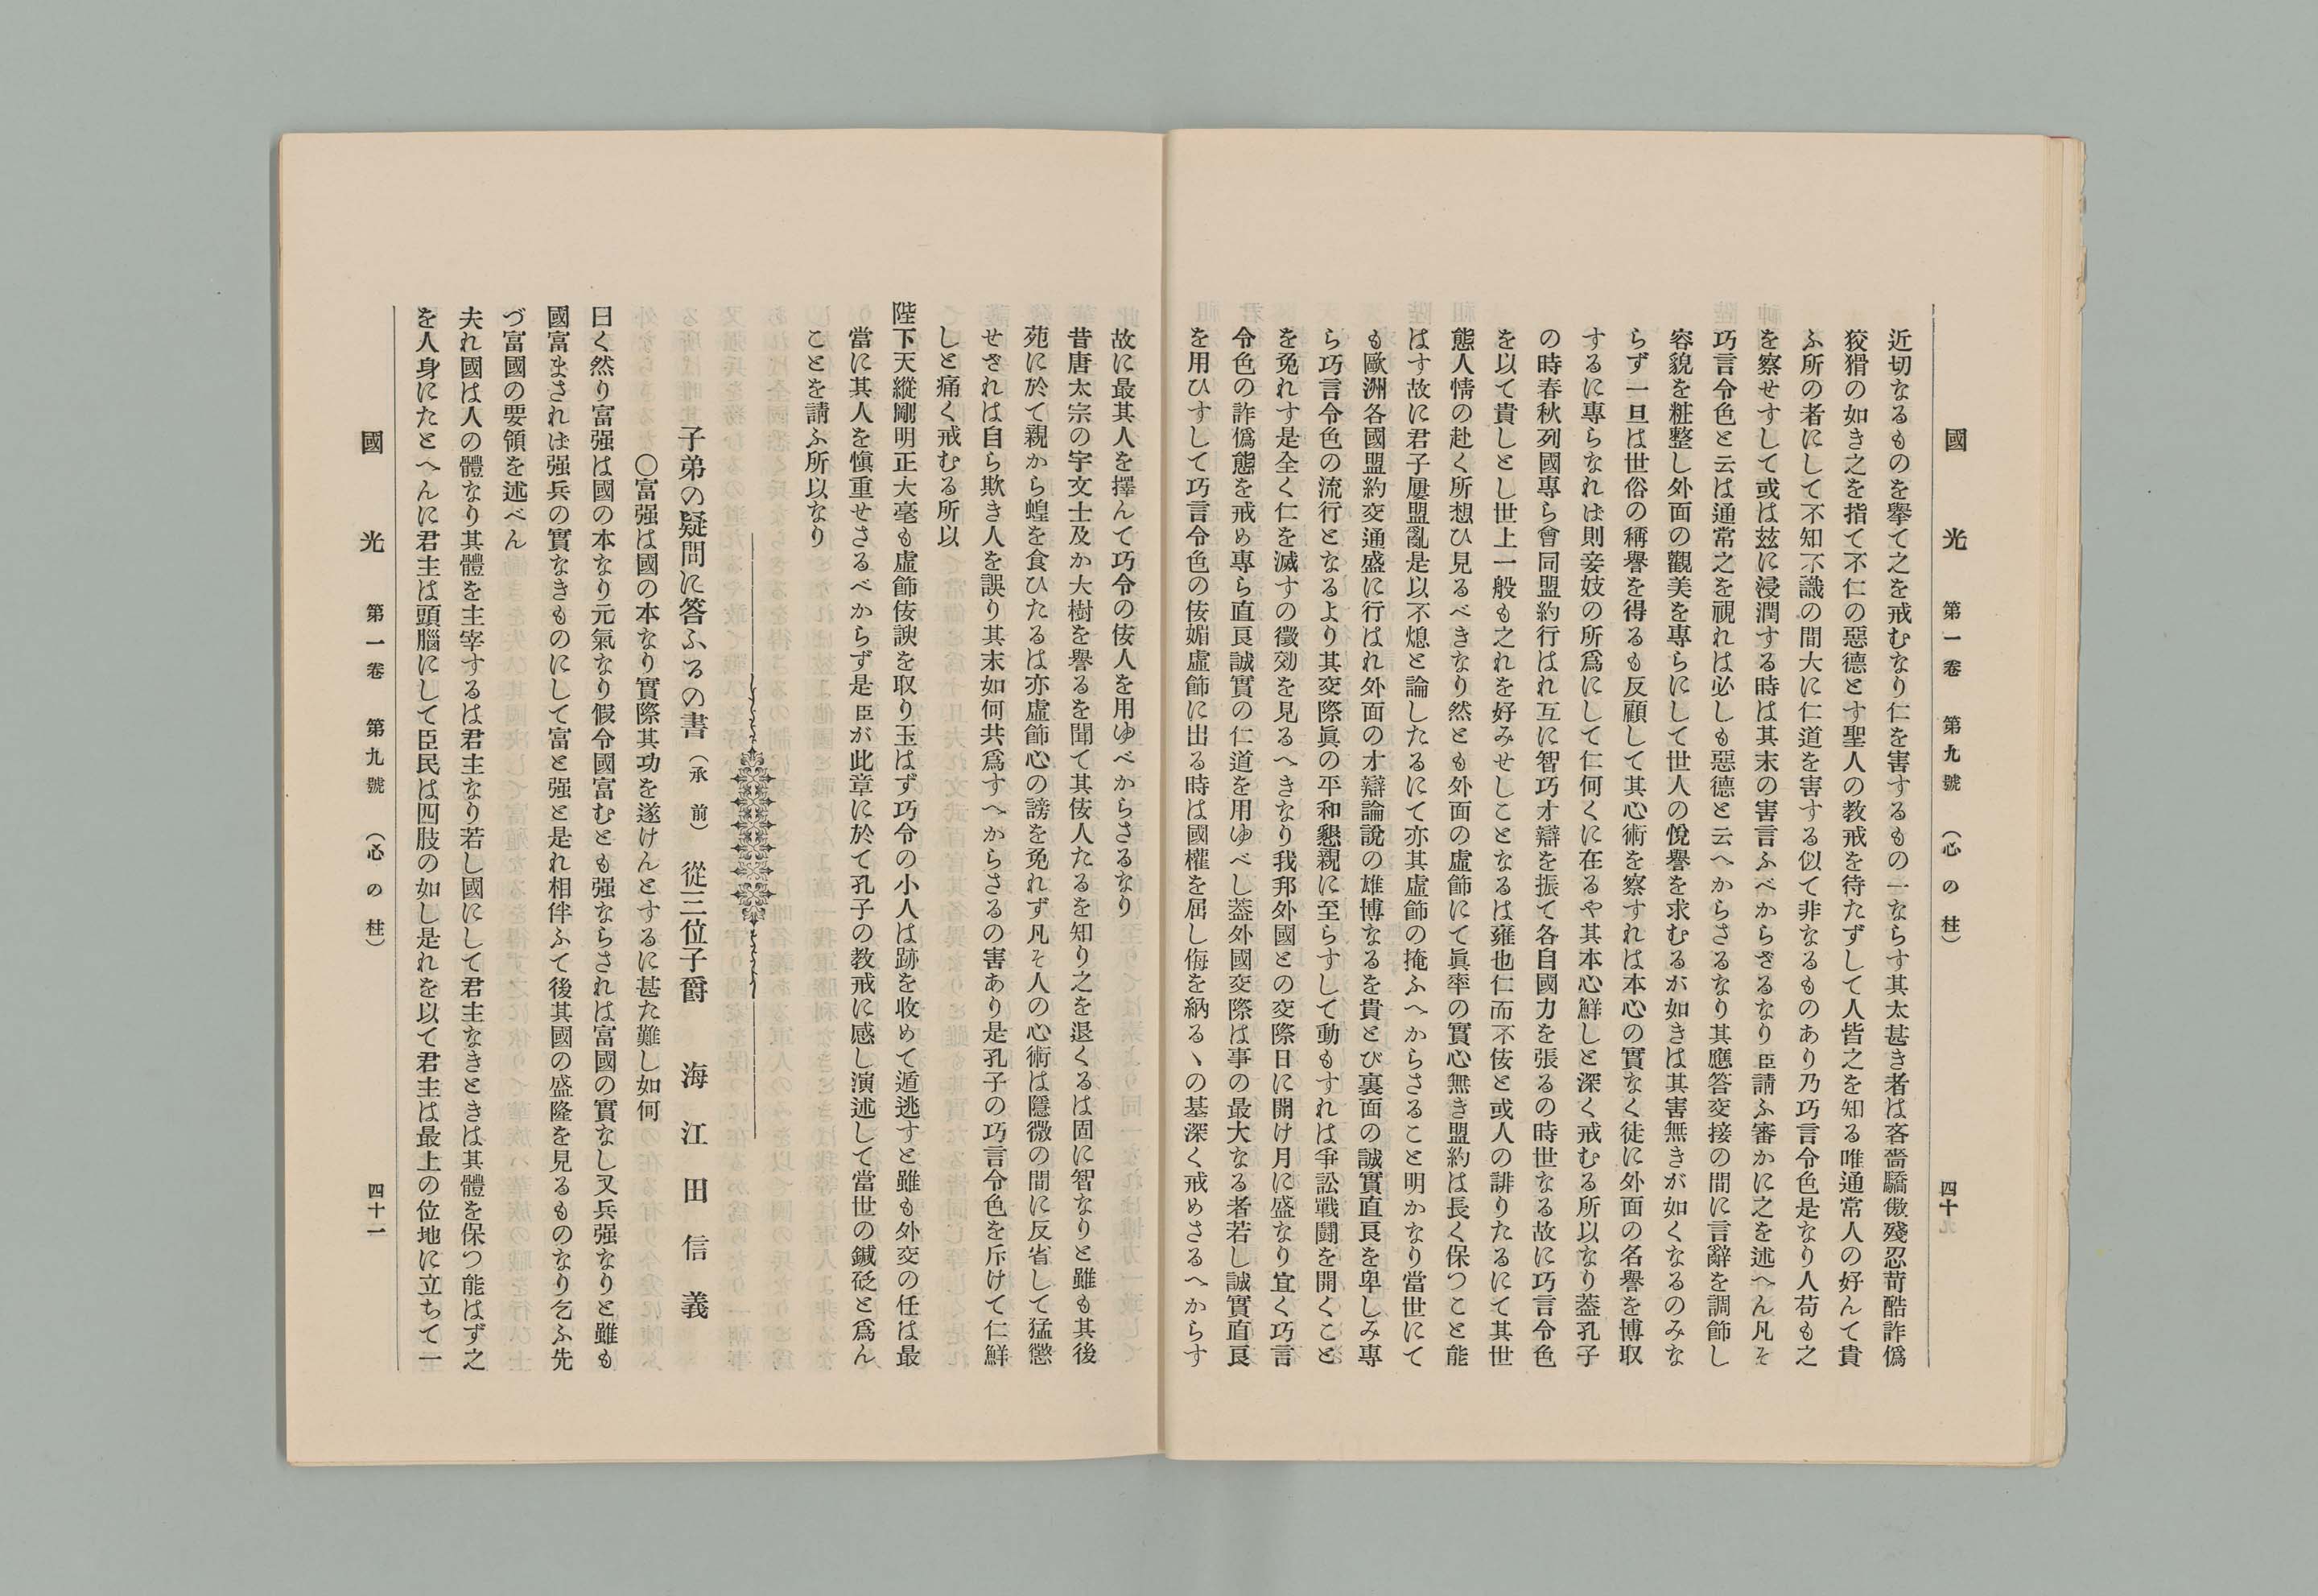 國光 第一卷 第九號 (心の柱) 四十
近切なるものを擧て之を戒むなり仁を害するもの一ならす其太甚き者は吝嗇驕傲殘忍苛酷詐僞
狡猾の如き之を指て不仁の惡德とす聖人の敎戒を待たずして人皆之を知る唯通常人の好んて貴
ふ所の者にして不知不識の間大に仁道を害する似て非なるものあり乃巧言令色是なり人苟も之
を察せすして或は玆に浸潤する時は其末の害言ふべからざるなり臣請ふ審かに之を述へん凡そ
巧言令色と云は通常之を視れは必しも惡德と云へからさるなり其應答交接の間に言辭を調飾し
容貌を粧整し外面の觀美を專らにして世人の悅譽を求むるが如きは其害無きが如くなるのみな
らず一旦は世俗の稱譽を得るも反顧して其心術を察すれは本心の實なく徒に外面の名譽を博取
するに專らなれは則妾妓の所爲にして仁何くに在るや其本心鮮しと深く戒むる所以なり蓋孔子
の時春秋列國專ら會同盟約行はれ互に智巧才辯を振て各自國力を張るの時世なる故に巧言令色
を以て貴しとし世上一般も之れを好みせしことなるは雍也仁而不佞と或人の誹りたるにて其世
態人情の赴く所想ひ見るべきなり然とも外面の虛飾にて眞率の實心無き盟約は長く保つこと能
はす故に君子屢盟亂是以不熄と論したるにて亦其虛飾の掩ふへからさること明かなり當世にて
も歐洲各國盟約交通盛に行はれ外面の才辯論說の雄博なるを貴とび裏面の誠實直良を卑しみ專
ら巧言令色の流行となるより其交際眞の平和懇親に至らすして動もすれは爭訟戰鬪を開くこと
を免れす是全く仁を滅すの徵効を見るへきなり我邦外國との交際日に開け月に盛なり宜く巧言
令色の詐僞態を戒め專ら直良誠實の仁道を用ゆべし蓋外國交際は事の最大なる者若し誠實直良
を用ひすして巧言令色の佞媚虛飾に出る時は國權を屈し侮を納るヽの基深く戒めさるへからす
故に最其人を擇んて巧令の佞人を用ゆべからさるなり
昔唐太宗の宇文士及か大樹を譽るを聞て其佞人たるを知り之を退くるは固に智なりと雖も其後
苑に於て親から蝗を食ひたるは亦虛飾心の謗を免れず凡そ人の心術は隱微の間に反省して猛懲
せされは自ら欺き人を誤り其末如何共爲すへからさるの害あり是孔子の巧言令色を斥けて仁鮮
しと痛く戒むる所以
陛下天縱剛明正大毫も虛飾佞諛を取り玉はず巧令の小人は跡を收めて遁逃すと雖も外交の任は最
當に其人を愼重せさるべからず是臣が此章に於て孔子の敎戒に感し演述して當世の鍼砭と爲ん
ことを請ふ所以なり
子弟の疑問に答ふるの書(承前) 從三位子爵 海江田信義
〇富强は國の本なり實際其功を遂けんとするに甚た難し如何
曰く然り富强は國の本なり元氣なり假令國富むとも强ならされは富國の實なし又兵强なりと雖も
國富まされは强兵の實なきものにして富と强と是れ相伴ふて後其國の盛隆を見るものなり乞ふ先
づ富國の要領を述べん
夫れ國は人の體なり其體を主宰するは君主なり若し國にして君主なきときは其體を保つ能はず之
を人身にたとへんに君主は頭腦にして臣民は四肢の如し是れを以て君主は最上の位地に立ちて一
國光 第一卷 第九號 (心の柱) 四十一